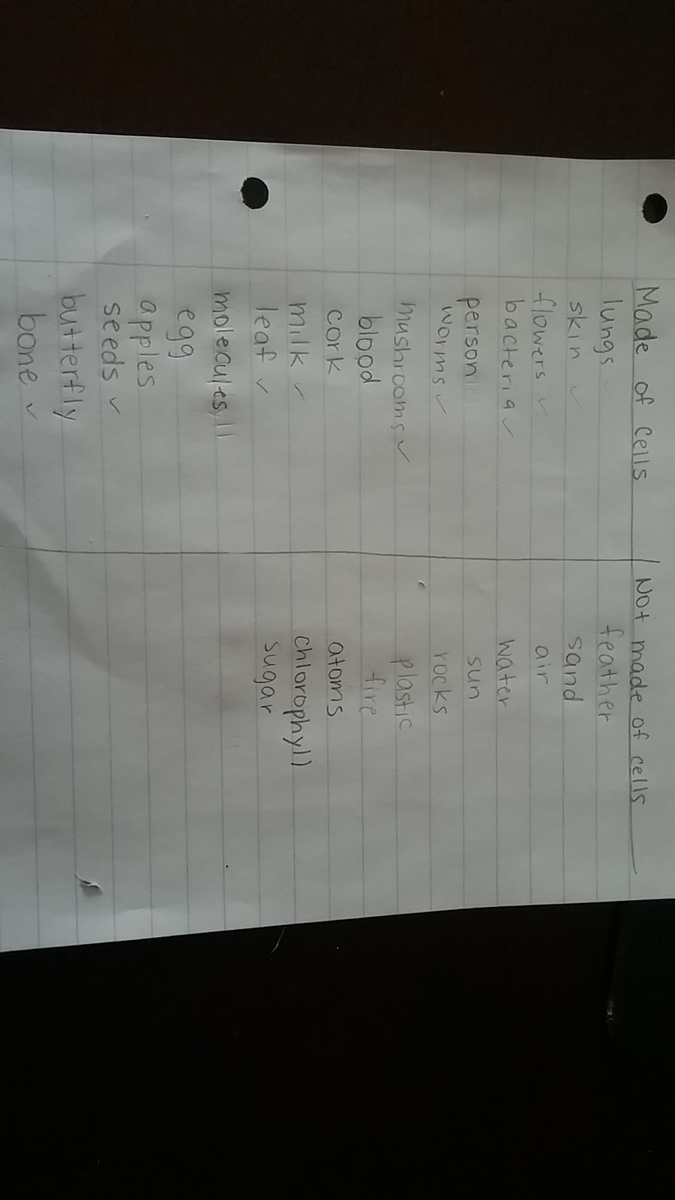 Made of cells | Not made of cells
lungs ✓ feather
skin ✓ sand
flowers ✓ air
bacteria ✓ water
person sun
worms ✓ rocks
mushrooms ✓ plastic
blood fire
cork atoms
milk ✓ chlorophyll
leaf ✓ sugar
molecules
egg
apples
seeds ✓
butterfly
bone ✓